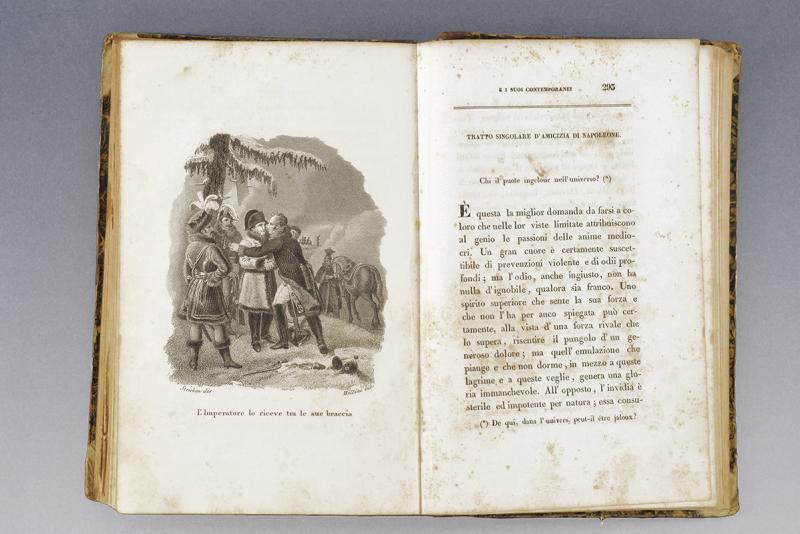 L'Imperatore lo riceve tra le sue braccia
E I SUOI CONTEMPORANEI 295
TRATTO SINGOLARE D'AMICIZIA DI NAPOLEONE.
Chi il puote ingelosir nell'universo? (*)
È questa la miglior domanda da farsi a co-
loro che nelle lor viste limitate attribuiscono
al genio le passioni delle anime medio-
cri. Un gran cuore è certamente suscet-
tibile di prevenzioni violente e di odii pro-
fondi; ma l'odio, anche ingiusto, non ha
nulla d'ignobile, qualora sia franco. Uno
spirito superiore che sente la sua forza e
che non l'ha per anco spiegata può cer-
tamente, alla vista d'una forza rivale che
lo supera, risentire il pungolo d'un ge-
neroso dolore; ma quell'emulazione che
piange e che non dorme, in mezzo a queste
lagrime e a queste veglie, genera una glo-
ria immanchevole. All'opposto, l'invidia è
sterile ed impotente per natura; essa consu-
(*) De qui, dans l'univers, peut-il être jaloux?